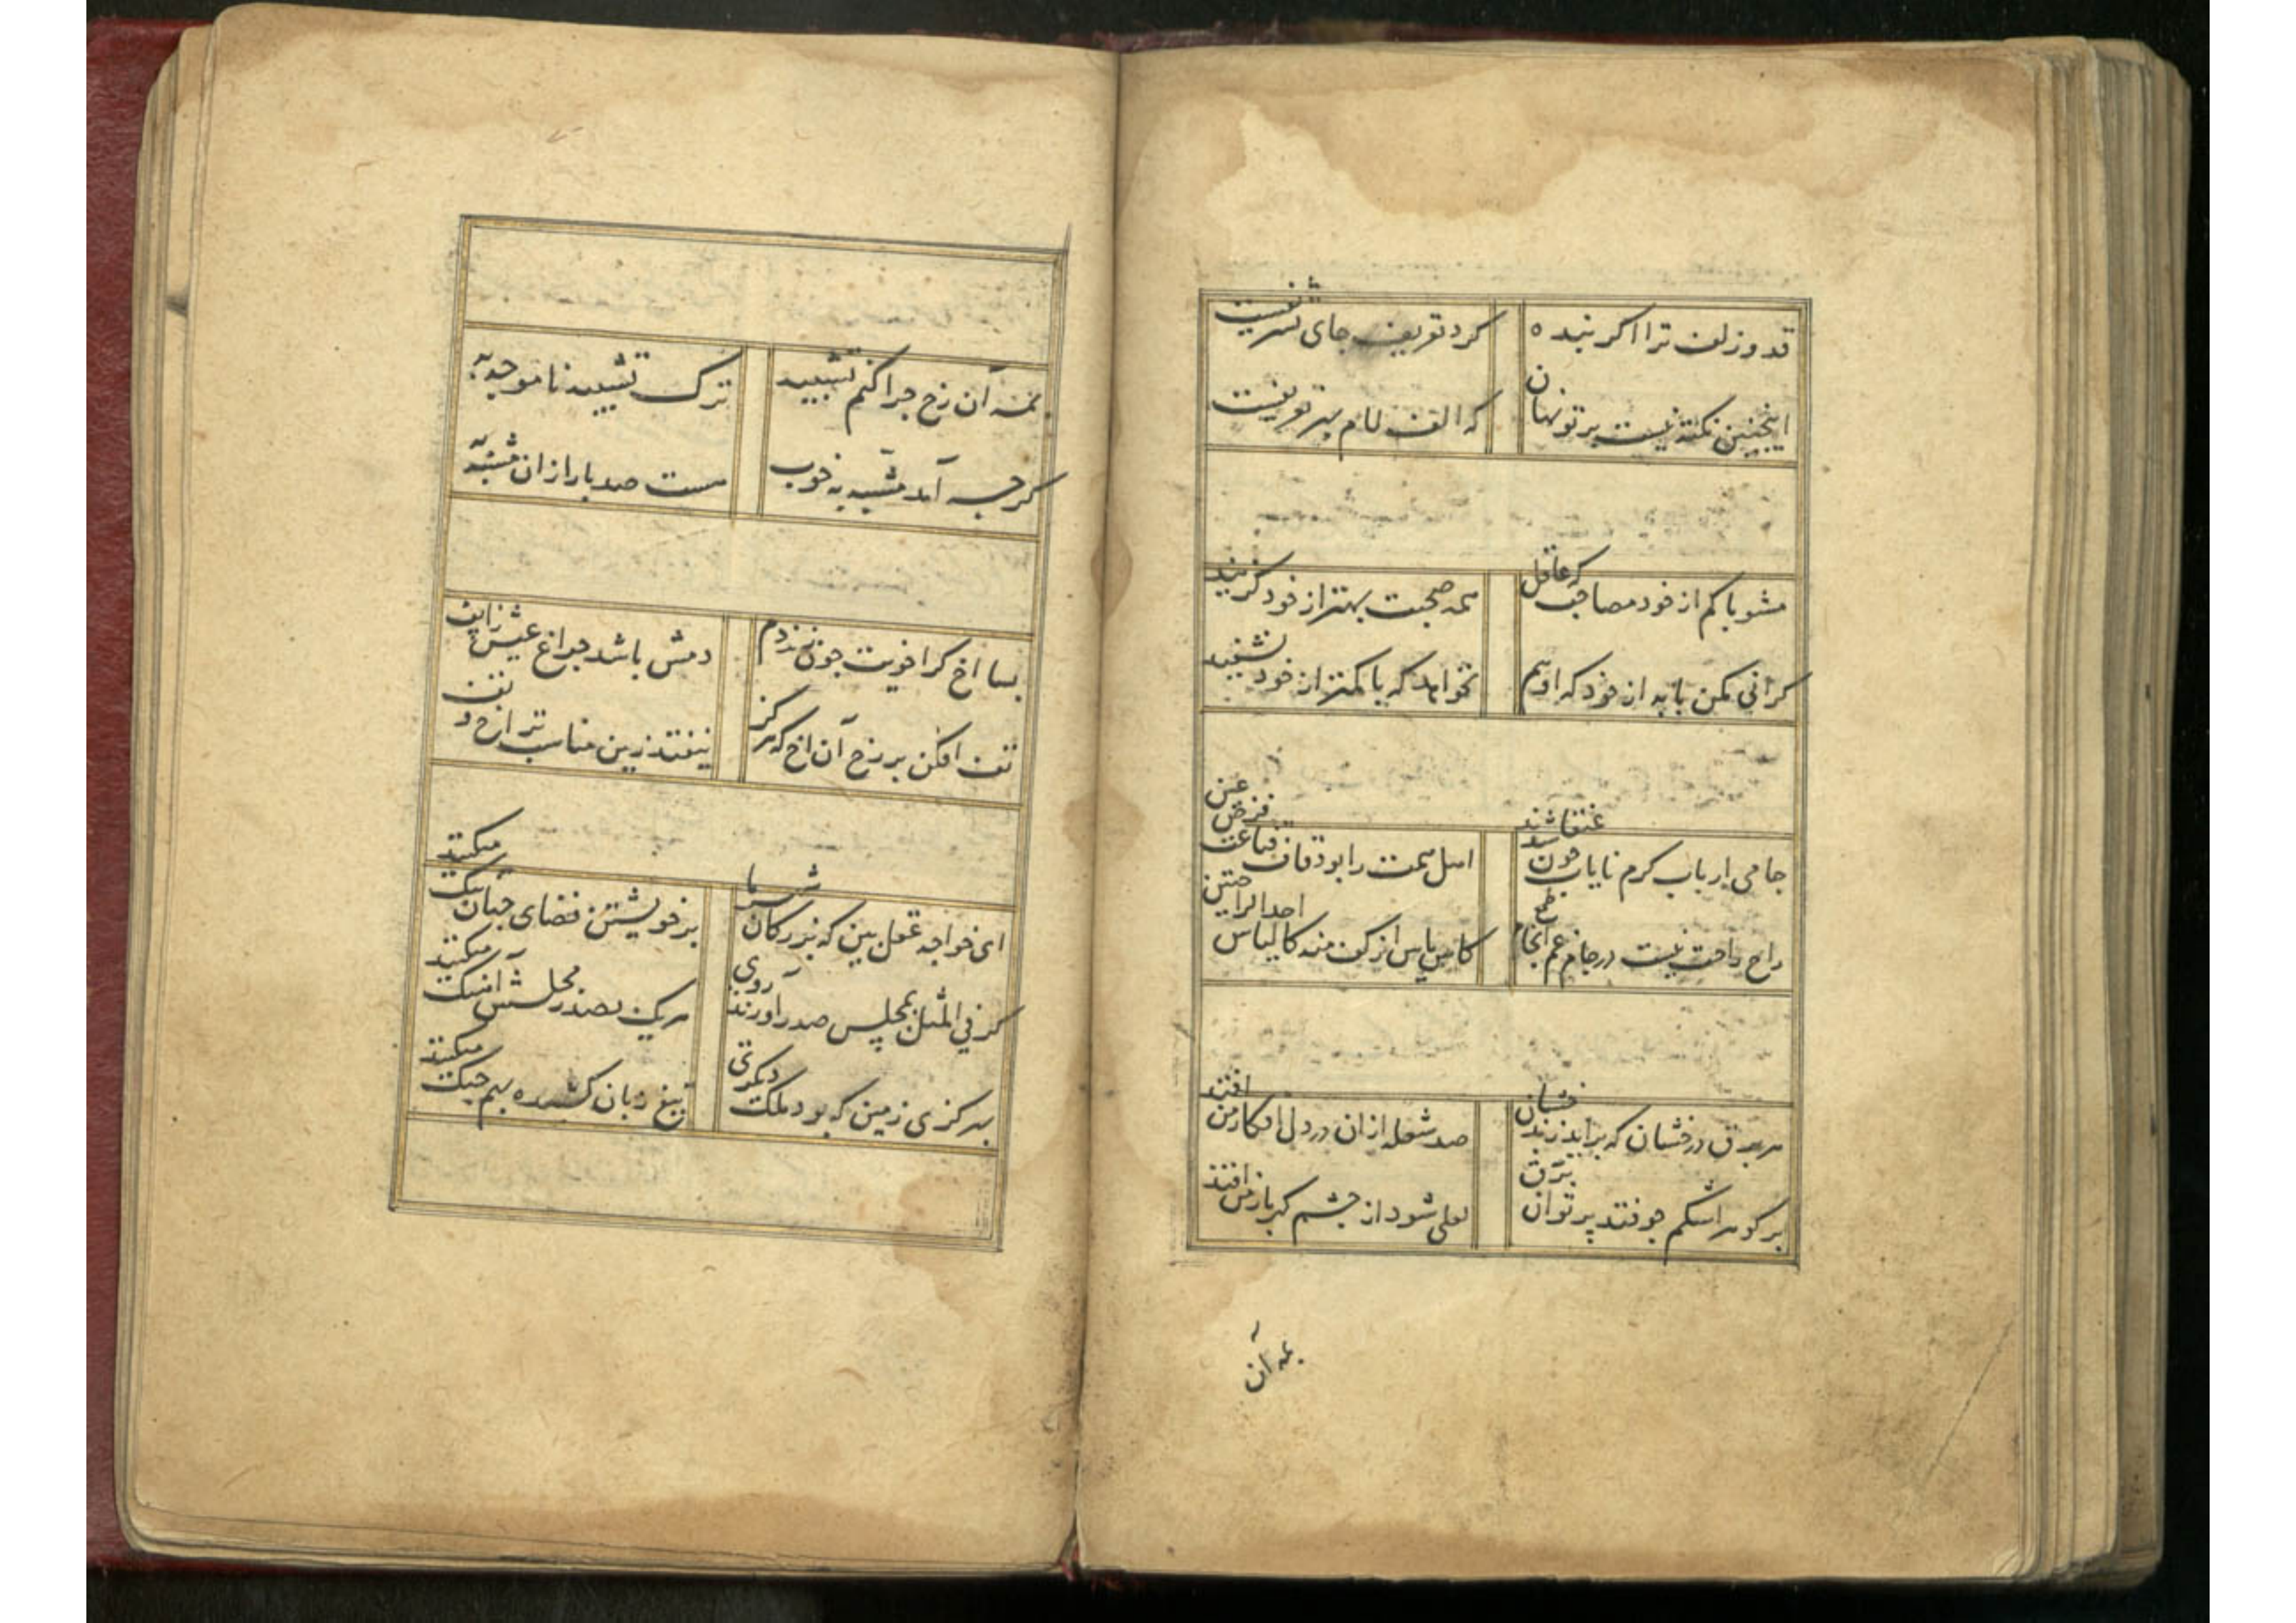 قد و زلف ترا اکر بنده
کرد تعریف جای تشریفست
اینچنین نکته نیست بر تو نهان
که الف لام بهر تعریفست
مشو با کم از خود مصاحب که عاقل
همه صحبت بهتر از خود کزیند
کرانی مکن با به از خود که او هم
نخواهد که با کمتر از خود نشیند
جامی ارباب کرم نایاب چون عنقا شدند
اهل همت را بود قاف قناعت
راح راحت نیست در جام غم انجام طمع
کاس یاس از کف منه کالیاس احدالراحتین
هر برق درفشان که براید ز بدخشان
صد شعله ازان در دل افکار من افتد
بر کوهر اشکم چو فتد پرتو ان برق
لعلی شود از چشم کهربار من افتد
بمه آن
بمه آن رخ چرا کنم تشبیه
ترک تشبیه ناموجه به
کرچه آمد مشبه به خوب
هست صد بار ازان مشبه به
بسا اخ کز اخویت چون زند دم
دمش باشد چراغ عیش را پف
تف افکن بر رخ آن اخ که هرکز
نیفتد زین مناسب تر اخ و تف
ای خواجه عقل بین که بزرکان شهر ما
بر خویشتن فضای جهان تنک میکنند
کر فی المثل بمجلس صدر آورند روی
هریک بصدر مجلسش آهنک میکنند
بهر کزی زمین که بود ملک دیکری
تیغ زبان کشیده بهم جنک میکنند